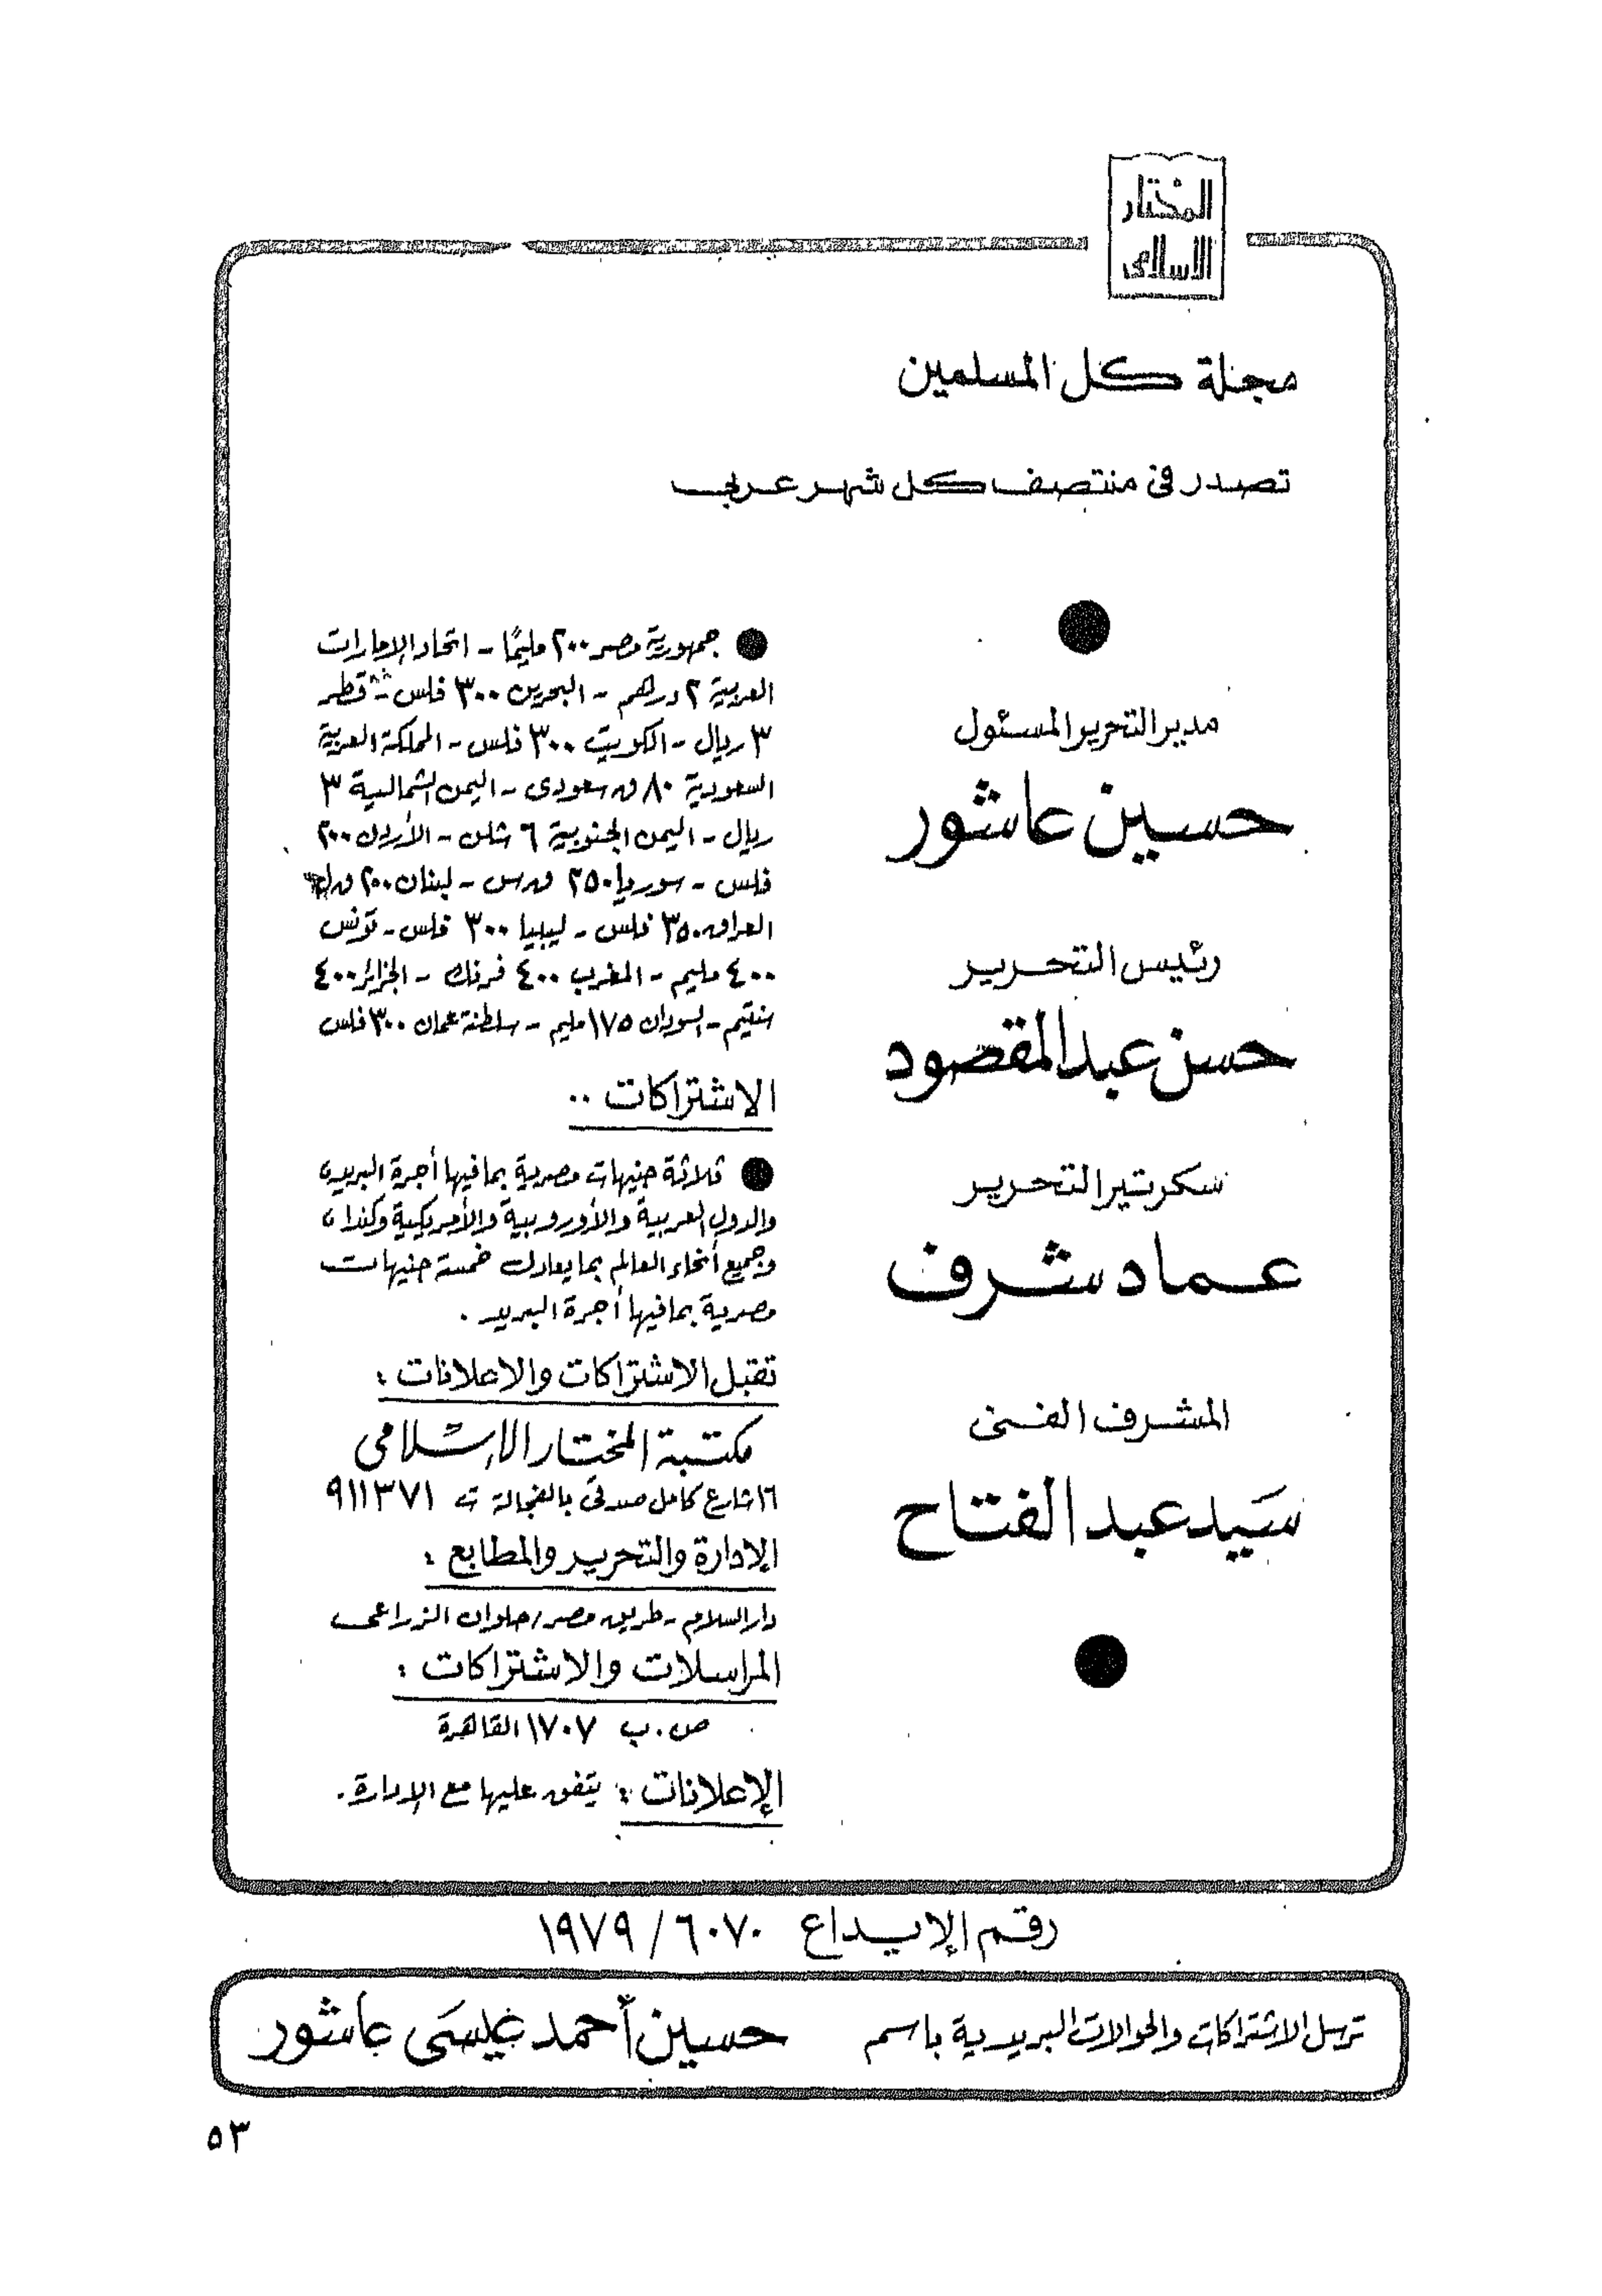 المختار
الاسلامى
مجلة كل المسلمين
تصدر فى منتصف كل شهر عربى
مدير التحرير المسئول
حسين عاشور
رئيس التحرير
حسن عبد المقصود
سكرتير التحرير
عماد شرف
المشرف الفنى
سَيد عبد الفتاح
● جمهورية مصر ٢٠٠ مليمًا - اتحاد الإمارات
العربية ٢ درهم - البحرين ٣٠٠ فلس - قطر
٣ ريال - الكويت ٣٠٠ فلس - المملكة العربية
السعودية ٨٠ ق سعودى - اليمن الشمالية ٣
ريال - اليمن الجنوبية ٦ شلن - الأردن ٢٠٠
فلس - سوريا ٢٥٠ ق س - لبنان ٢٠٠
العراق ٣٥٠ فلس - ليبيا ٣٠٠ فلس - تونس
٤٠٠ مليم - المغرب ٤٠٠ فرنك - الجزائر ٤٠٠
سنتيم - السودان ١٧٥ مليم - سلطنة عمان ٣٠٠ فلس
الاشتراكات ..
● ثلاثة جنيهات مصرية بما فيها أجرة البريد
والدول العربية والأوروبية والأمريكية وكندا
وجميع أنحاء العالم بما يعادل خمسة جنيهات
مصرية بما فيها أجرة البريد .
تقبل الاشتراكات والاعلانات :
مكتبة المختار الإسلامى
١٦ شارع كامل صدقى بالفجالة ت ٩١١٣٧١
الإدارة والتحرير والمطابع :
دار السلام - طريق مصر/حلوان الزراعى
المراسلات والاشتراكات :
ص . ب ١٧٠٧ القاهرة
الإعلانات : يتفق عليها مع الإدارة .
رقم الإيداع ٦٠٧٠ / ١٩٧٩
ترسل الاشتراكات والحوالات البريدية باسم حسين أحمد عيسَى عاشور
٥٣